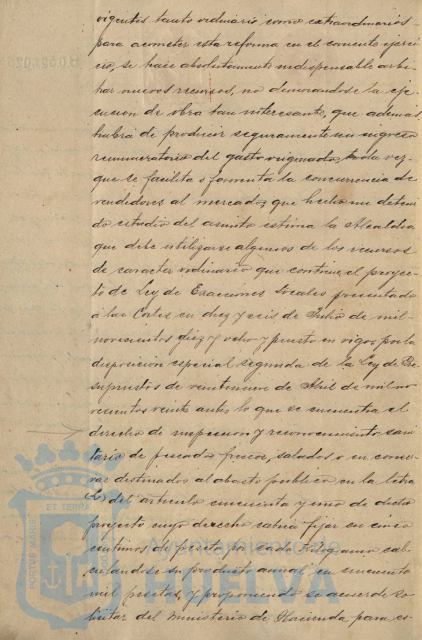 vigentes tanto ordinario como extraordinarios
para acometer esta reforma en el corriente ejerci-
cio, se hace absolutamente indispensable arbi-
trar nuevos recursos, no demorandose la eje-
cucion de obra tan interesante, que ademas,
habrá de producir seguramente un ingreso
remuneratorio del gasto originado, toda vez
que se facilita y fomenta la concurrencia de
vendedores al mercado; que hecho un deteni-
do estudio del asunto estima la Alcaldia
que debe utilizarse algunos de los recursos
de caracter ordinario que contiene el proyec-
to de Ley de Exacciones locales presentado
á las Cortes en diez y seis de Julio de mil
novecientos diez y ocho y puesto en vigor por la
disposicion especial segunda de la Ley de Pre-
supuestos de veintinueve de Abril de mil no-
vecientos veinte entre lo que se encuentra el
derecho de inspeccion y reconocimiento sani-
tario de pescados frescos, salados o en conser-
vas destinados al abasto publico en la letra
del articulo cincuenta y uno de dicho
proyecto cuyo derecho cabria fijar en cinco
centimos de peseta por cada kilogramo cal-
culandose su producto anual en cincuenta
mil pesetas, y proponiendo se acuerde so-
licitar del Ministerio de Hacienda para es-
PORTUS MARIS ET TERRAE
Ayuntamiento de
HUELVA